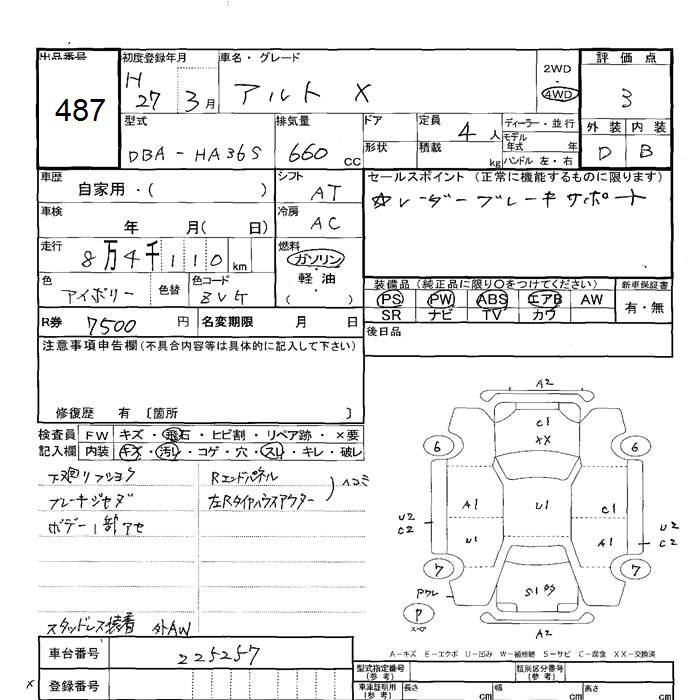 出品番号 487
初度登録年月 H 27 3月
車名・グレード アルト X
2WD ・ 4WD
評価点 3
型式 DBA-HA36S
排気量 660 cc
ドア
形状
定員 4 人
積載 kg
ディーラー・並行
モデル年式 年
ハンドル 左・右
外装 内装
D B
車歴 自家用・( )
シフト AT
セールスポイント (正常に機能するものに限ります)
☆レーダーブレーキサポート
車検 年 月( 日)
冷房 AC
走行 8万4千110 km
燃料 ガソリン・軽油 ( )
色 アイボリー 色替 色コード ZVG
装備品 (純正品に限り○をつけてください)
PS PW ABS エアB AW
SR ナビ TV カワ
新車保証書 有・無
R券 7500 円 名変期限 月 日
後日品
注意事項申告欄 (不具合内容等は具体的に記入して下さい)
修復歴 有 〔箇所 〕
検査員記入欄
FW キズ・飛石・ヒビ割・リペア跡・×要
内装 キズ・汚リ・コゲ・穴・スレ・キレ・破レ
下廻リフショク
ボデー1部アセ
Rエンドパネル
左Rタイヤハウスアウター ヘコミ
スタッドレス装着 外AW
A2
C1
XX
6 6
A1 U1 C1
U2 C2
U1 A1
U2 C2
7 7
S1
P スペア
A2
A-キズ E-エクボ U-凹み W-補修跡 S-サビ C-腐食 XX-交換済
車台番号 225257
x 登録番号
型式指定番号 (参考) 類別区分番号 (参考)
車庫証明用 (参考) 長さ cm 幅 cm 高さ cm